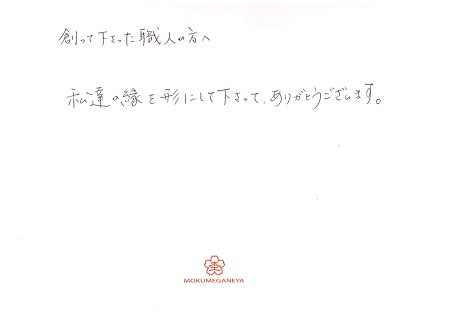 創って下さった職人の方へ
私達の縁を形にして下さって、ありがとうございます。
MOKUMEGANEYA